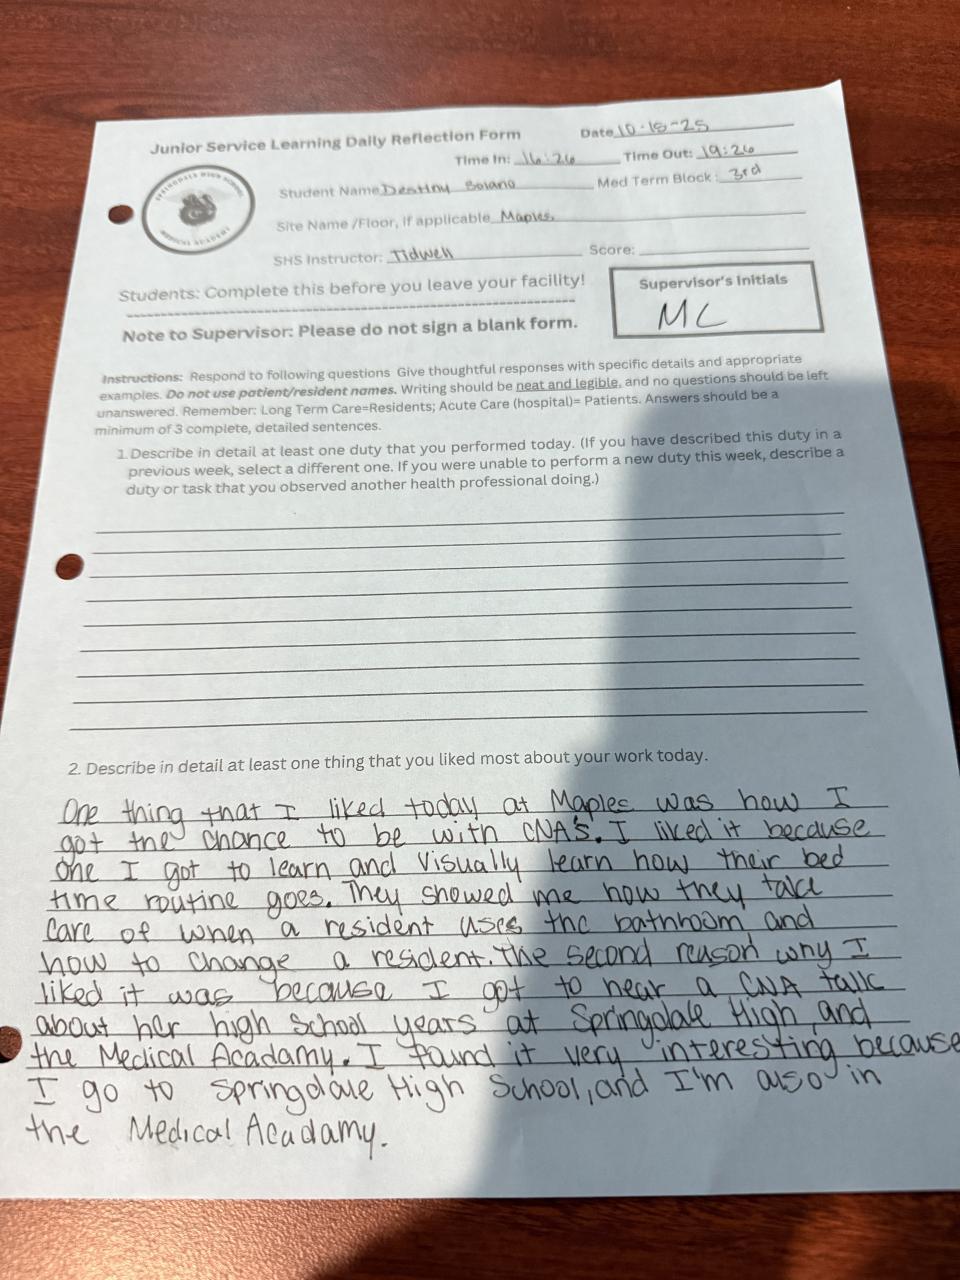 Junior Service Learning Daily Reflection Form
Date 10-18-25
Time In: 16:26
Time Out: 19:26
SPRINGDALE HIGH SCHOOL
MEDICAL ACADEMY
Student Name Destiny Solano
Med Term Block: 3rd
Site Name /Floor, if applicable Maples.
SHS Instructor: Tidwell
Score:
Students: Complete this before you leave your facility!
Supervisor's Initials
MC
Note to Supervisor: Please do not sign a blank form.
Instructions: Respond to following questions Give thoughtful responses with specific details and appropriate
examples. Do not use patient/resident names. Writing should be neat and legible, and no questions should be left
unanswered. Remember: Long Term Care=Residents; Acute Care (hospital)= Patients. Answers should be a
minimum of 3 complete, detailed sentences.
1. Describe in detail at least one duty that you performed today. (If you have described this duty in a
previous week, select a different one. If you were unable to perform a new duty this week, describe a
duty or task that you observed another health professional doing.)
2. Describe in detail at least one thing that you liked most about your work today.
One thing that I liked today at Maples was how I
got the chance to be with CNA's. I liked it because
one I got to learn and visually learn how their bed
time routine goes. They showed me how they take
care of when a resident uses the bathroom and
how to change a resident. The second reason why I
liked it was because I got to hear a CNA talk
about her high school years at Springdale High and
the Medical Acadamy. I found it very interesting because
I go to Springdale High School, and I'm also in
the Medical Acadamy.